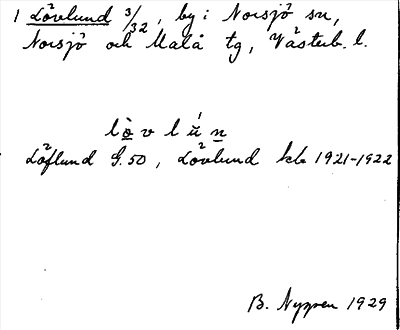 1 Lövlund 3/32, by i Norsjö sn,
Norsjö och Malå tg, Västerb. l.
lòvlún
Löflund G.50, Lövlund kb 1921-1922
B. Nyman 1929